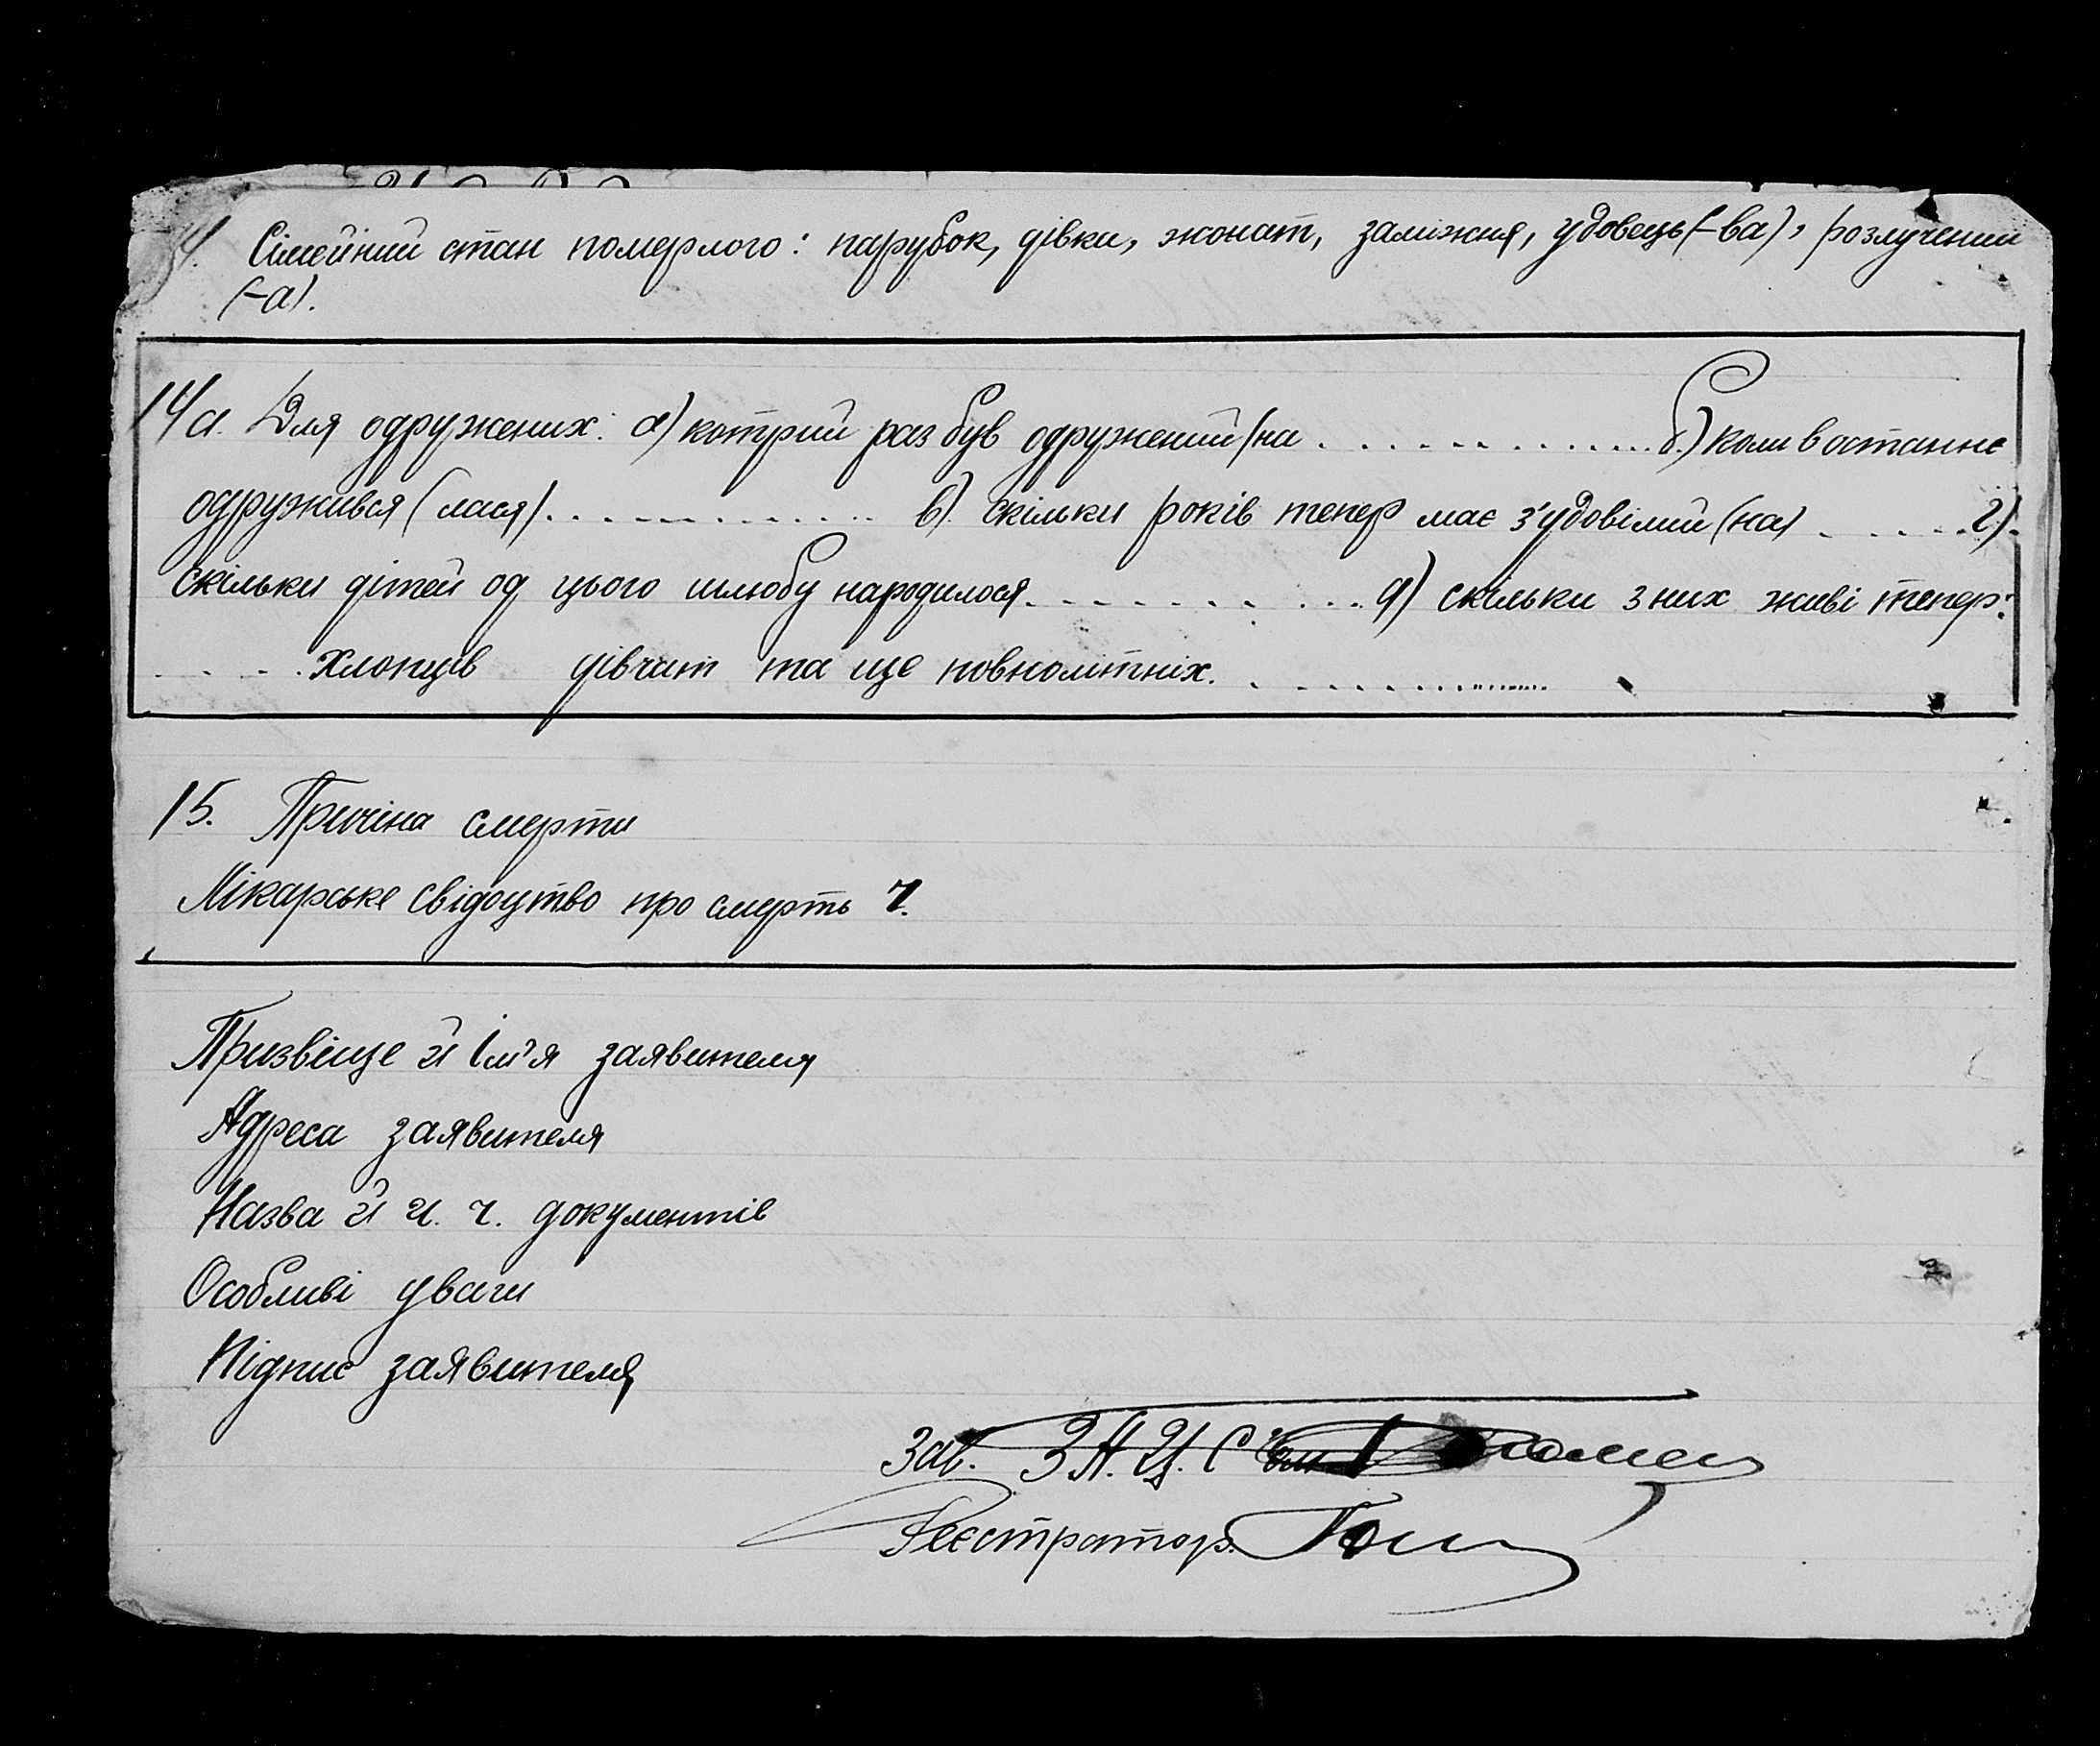 14. Сімейний стан померлого: парубок, дівки, жонат, заміжня, удовець (-ва), розлучений
(-а).
14а. Для одружених: а) котрий раз був одружений (на ............... б.) коли востаннє
одружився (лася) ............... в). скільки років тепер має з'удовілий (на) ....... г).
скільки дітей од цього шлюбу народилося ............... д) скільки з них живі тепер:
..... хлопців дівчат та ще повнолітніх. ...............
15. Причіна смерти
Лікарське свідоцтво про смерть Ч.
Призвіще й ім'я заявителя
Адреса заявителя
Назва й ч. ч. документів
Особливі уваги
Підпис заявителя
Зав. ЗАЦС
Реєстратор.